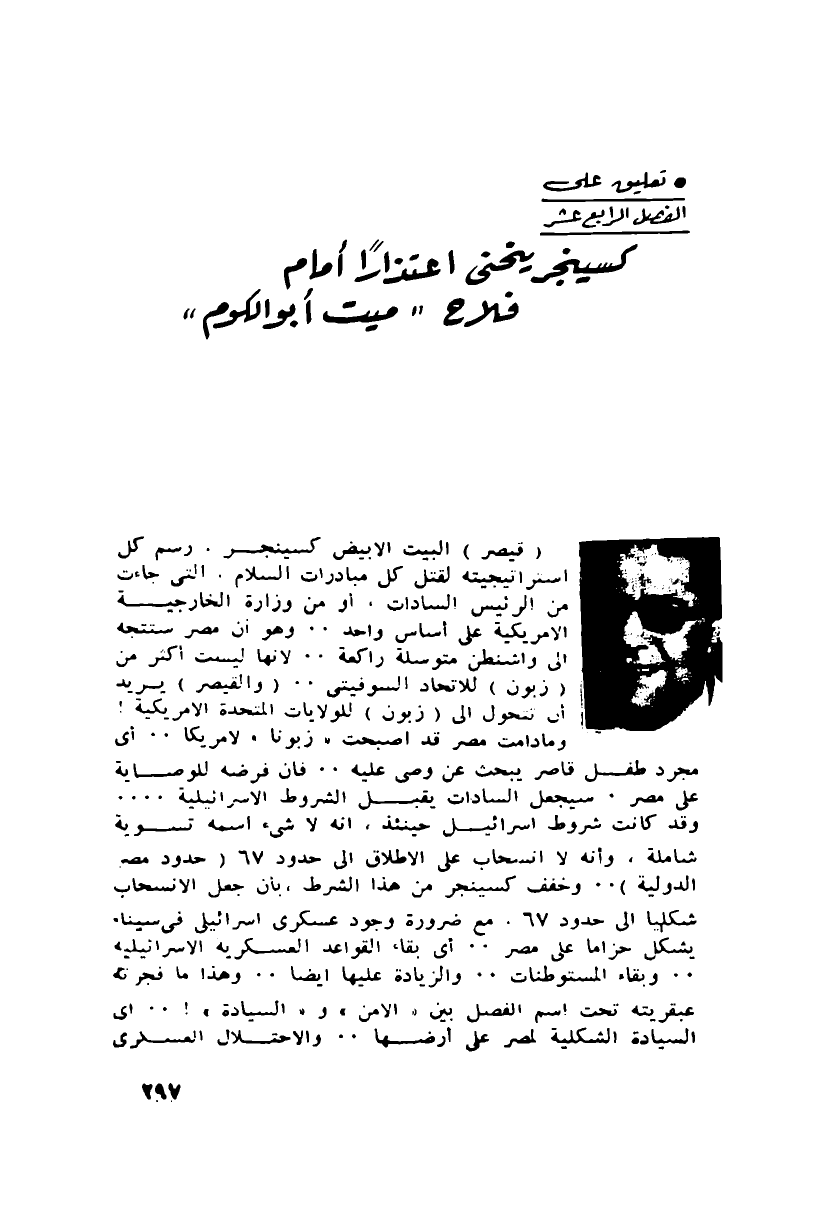 • تعليق على
الفصل الرابع عشر
كسينجر ينحنى اعتذارًا أمام
فلاح " ميت أبوالكوم "
( قيصر ) البيت الابيض كسينجـــر . رسم كل
استراتيجيته لقتل كل مبادرات السلام . التى جاءت
من الرئيس السادات ، أو من وزارة الخارجيــــة
الامريكية على أساس واحد ٠٠ وهو أن مصر ستتجه
الى واشنطن متوسلة راكعة ٠٠ لانها ليست أكثر من
( زبون ) للاتحاد السوفيتى ٠٠ ( والقيصر ) يــريد
أن تتحول الى ( زبون ) للولايات المتحدة الامريكية !
ومادامت مصر قد اصبحت « زبونا » لامريكا ٠٠ أى
مجرد طفـــل قاصر يبحث عن وصى عليه ٠٠ فان فرضه للوصـــاية
على مصر ٠ سيجعل السادات يقبـــل الشروط الاسرائيلية ٠٠٠٠
وقد كانت شروط اسرائيـــل حينئذ ، انه لا شىء اسمه تســوية
شاملة ، وأنه لا انسحاب على الاطلاق الى حدود ٦٧ ( حدود مصر
الدولية )٠٠ وخفف كسينجر من هذا الشرط ،بأن جعل الانسحاب
شكليا الى حدود ٦٧ . مع ضرورة وجود عسكرى اسرائيلى فى سيناء
يشكل حزاما على مصر ٠٠ أى بقاء القواعد العسكريه الاسرائيليه
٠٠ وبقاء المستوطنات ٠٠ والزيادة عليها ايضا ٠٠ وهذا ما فجرته
عبقريته تحت اسم الفصل بين « الامن » و « السيادة » ! ٠٠ اى
السيادة الشكلية لمصر على أرضـــها ٠٠ والاحتـــلال العسكرى
٢٩٧